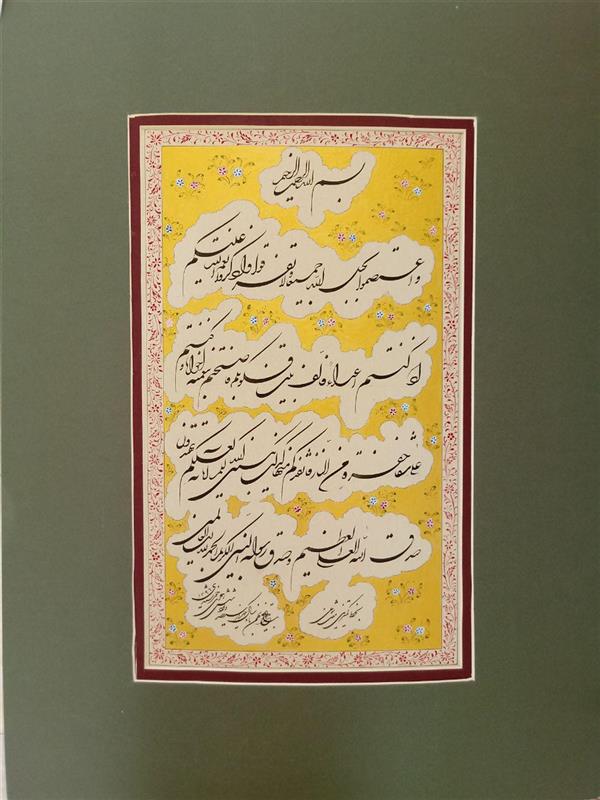 بسم الله الرحمن الرحیم
و اعتصموا بحبل الله جمیعا و لا تفرقوا و اذکروا نعمة الله علیکم
اذ کنتم اعداء فالف بین قلوبکم فاصبحتم بنعمته اخوانا و کنتم
علی شفا حفرة من النار فانقذکم منها کذلک یبین الله لکم آیاته لعلکم تهتدون
صدق الله العلی العظیم و صدق رسوله النبی الکریم الحمد لله رب العالمین